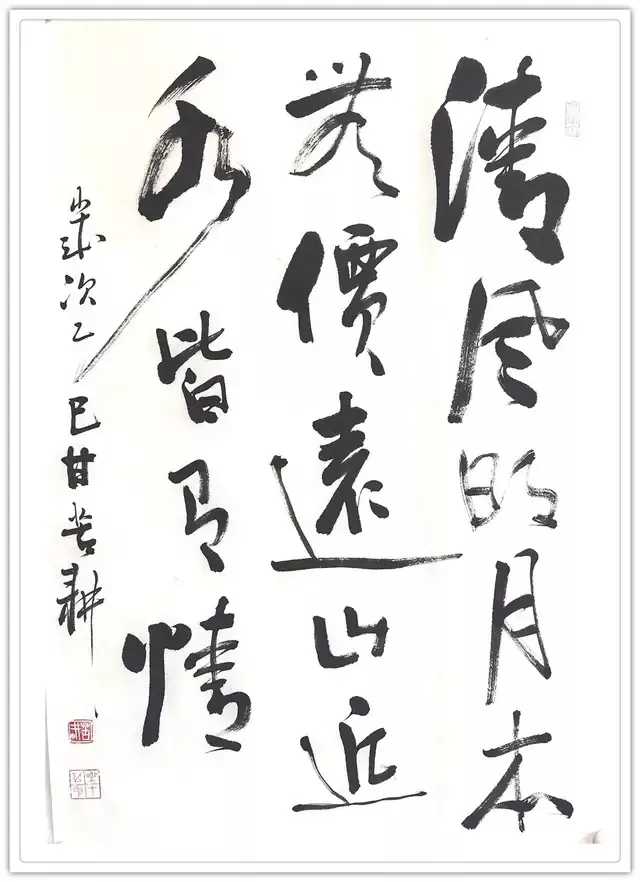 清风明月本
無價遠山近
水皆有情
歲次乙巳甘苦耕